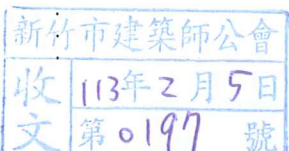 新竹市建築師公會
收文
113年2月5日
第0197號